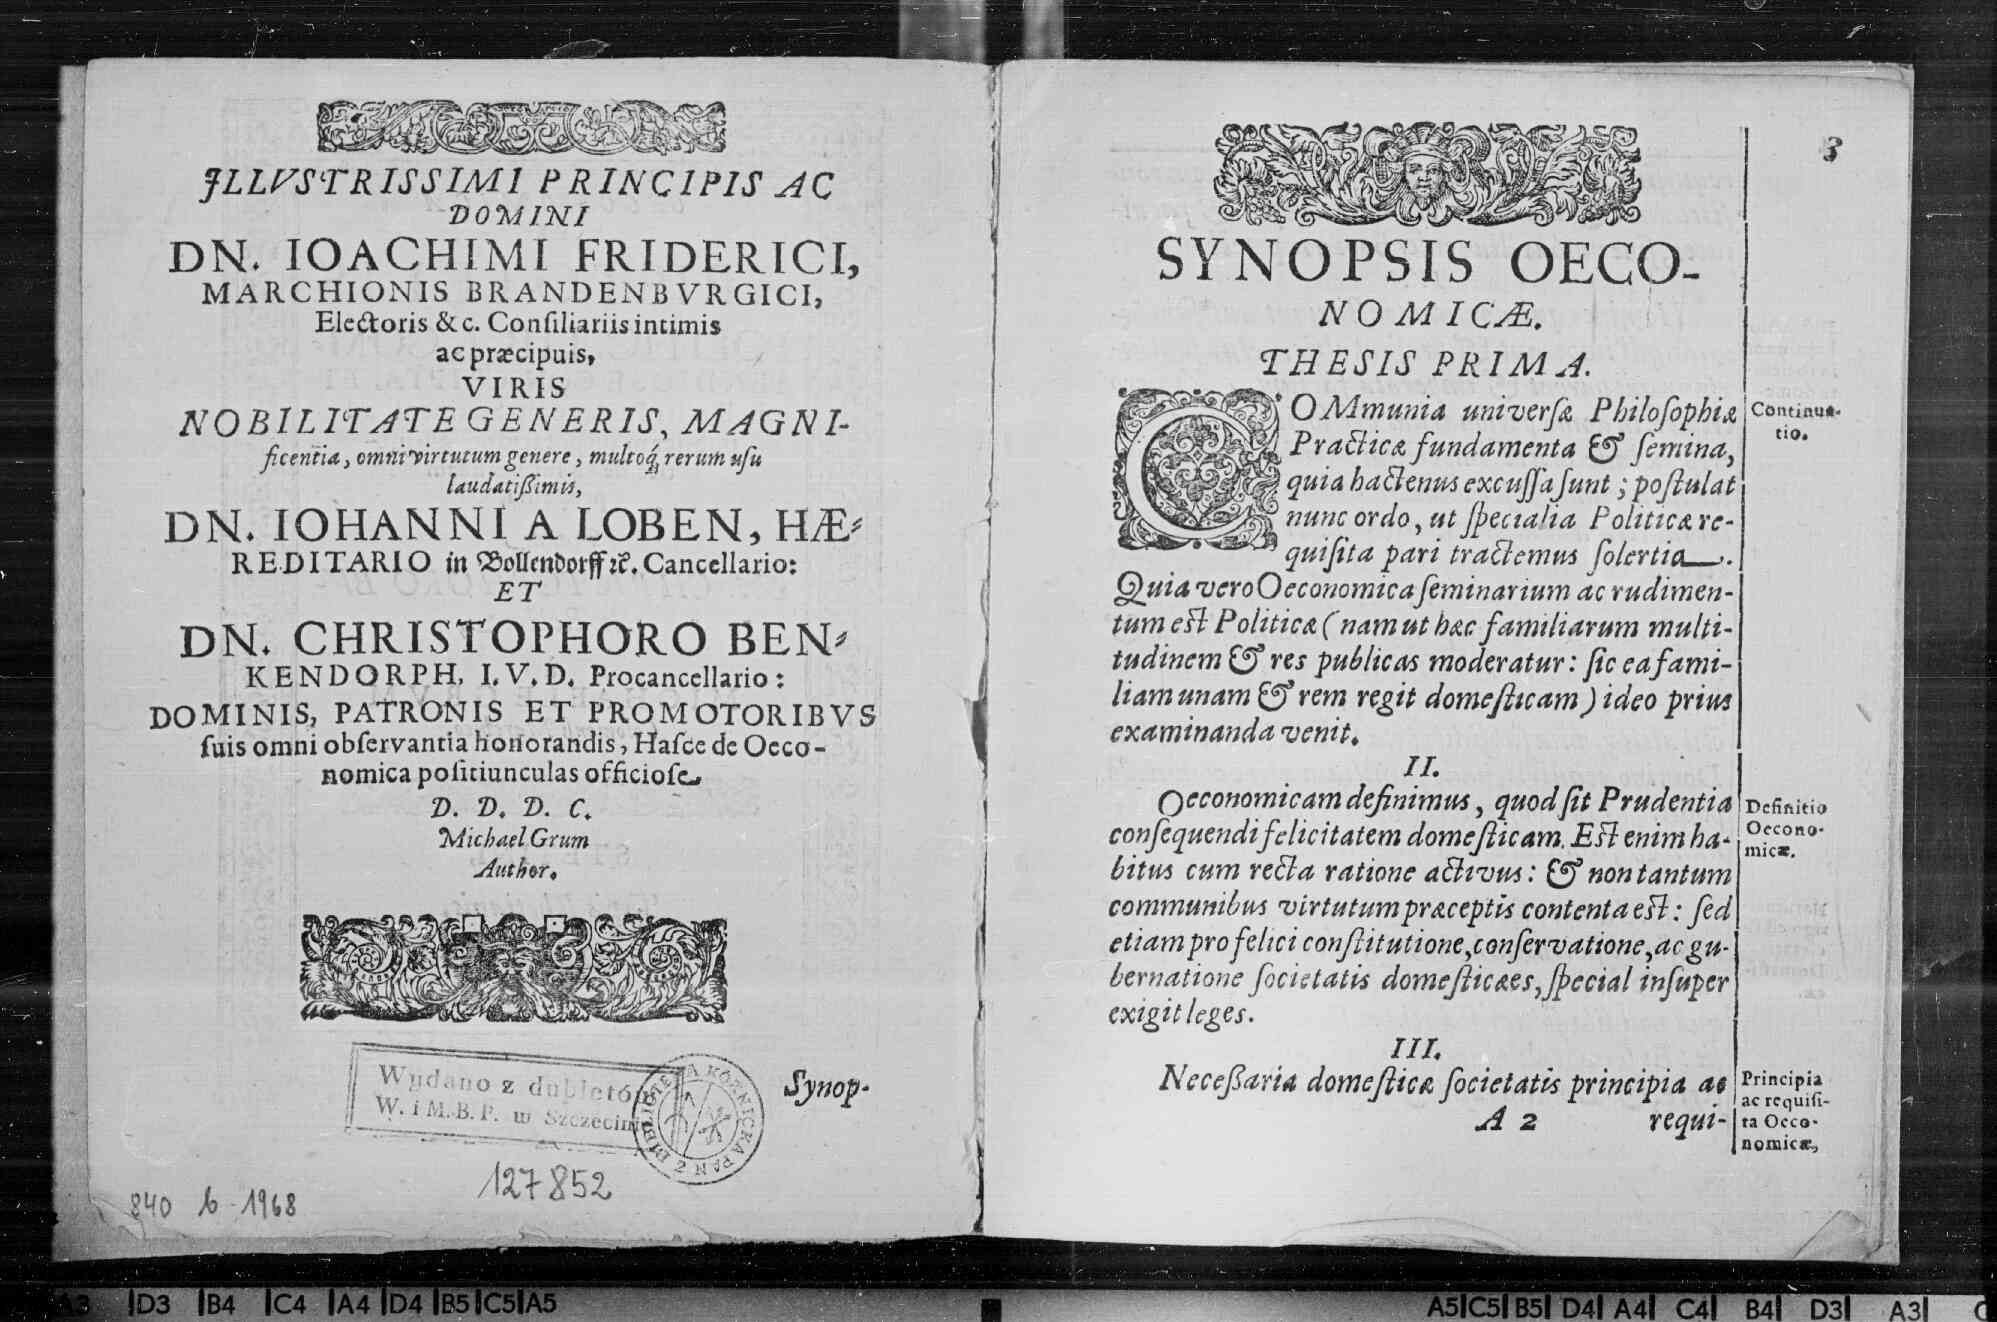 ILLVSTRISSIMI PRINCIPIS AC
DOMINI
DN. IOACHIMI FRIDERICI,
MARCHIONIS BRANDENBVRGICI,
Electoris &c. Conſiliariis intimis
ac præcipuis,
VIRIS
NOBILITATE GENERIS, MAGNI-
ficentia, omni virtutum genere, multoq́; rerum uſu
laudatißimis,
DN. IOHANNI A LOBEN, HÆ-
REDITARIO in Bollendorff ꝛc. Cancellario:
ET
DN. CHRISTOPHORO BEN-
KENDORPH, I. V. D. Procancellario:
DOMINIS, PATRONIS ET PROMOTORIBVS
ſuis omni obſervantia honorandis, Haſce de Oeco-
nomica poſitiunculas officioſe
D. D. D. C.
Michael Grum
Author.
Synop-
Wydano z dubletów
W. i M. B. P. w Szczecinie
BIBLIOTEKA KÓRNICKA PAN Z
127852
840 6 1968
3
SYNOPSIS OECO-
NOMICÆ.
THESIS PRIMA.
COMmunia univerſæ Philoſophiæ
Practicæ fundamenta & ſemina,
quia hactenus excuſſa ſunt; poſtulat
nunc ordo, ut ſpecialia Politicæ re-
quiſita pari tractemus ſolertia.
Quia vero Oeconomica ſeminarium ac rudimen-
tum eſt Politicæ (nam ut hæc familiarum multi-
tudinem & res publicas moderatur: ſic ea fami-
liam unam & rem regit domeſticam) ideo prius
examinanda venit.
Continua-
tio.
II.
Oeconomicam definimus, quod ſit Prudentia
conſequendi felicitatem domeſticam. Eſt enim ha-
bitus cum recta ratione activus: & non tantum
communibus virtutum præceptis contenta eſt: ſed
etiam pro felici conſtitutione, conſervatione, ac gu-
bernatione ſocietatis domeſticæes, ſpecial inſuper
exigit leges.
Definitio
Oecono-
micæ.
III.
Neceßaria domeſticæ ſocietatis principia ac
A 2 requi-
Principia
ac requiſi-
ta Oeco-
nomicæ,
A3 D3 B4 C4 A4 D4 B5 C5 A5
A5 C5 B5 D4 A4 C4 B4 D3 A3 C